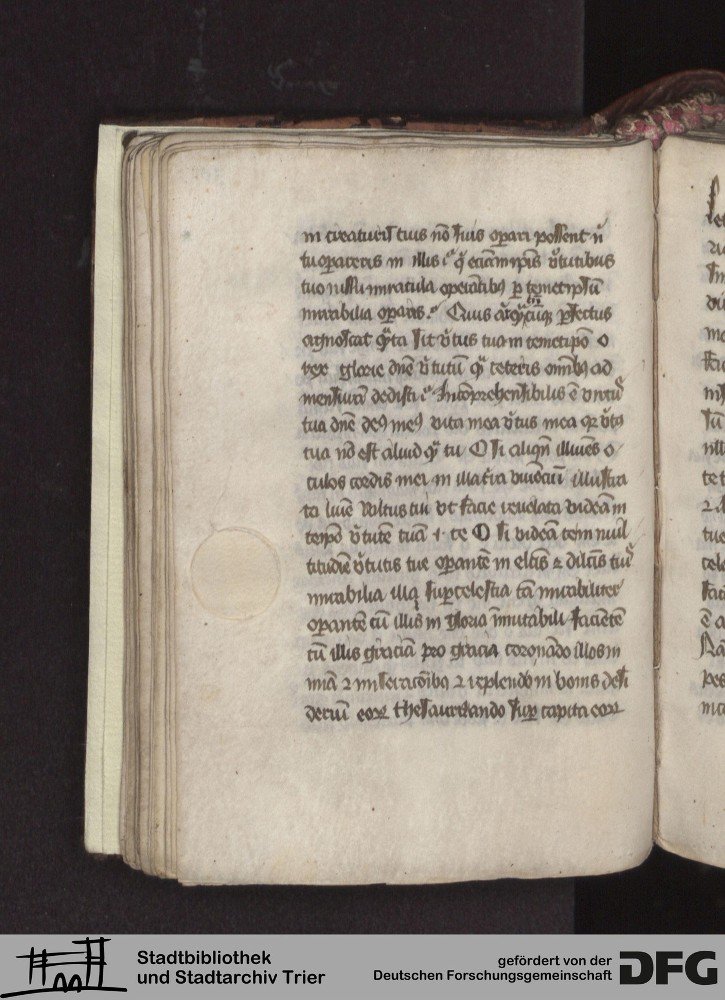 in creaturis tuis nō suis oꝑari possent ñ
tu oꝑareris in illis
tuo miracula oꝑātibꝰ ꝑ temetip̄m
mirabilia oꝑaris. Quis ꝑfectus
agnoscat q̄ta sit v̄tus tua in temetip̄o o
rex glorie dn̄e v̄tutū q̄ ceteris om̄ibꝰ ad
mensurā dedisti Incōprehensibilis ē
tua dn̄e deꝰ meꝰ vita mea v̄tus mea
tua nō est aliud q̄ tu O si aliqn̄ illuīes o
culos cordis mei in illa t̄ra viuēciū illustra
to luīe vultus tui vt facie reuelata videā in
teip̄o v̄tutē tuā .i. te O si videā
titudīē v̄tutis tue oꝑantē in el̄cis ⁊ dil̄cis
mirabilia illa suꝑcelestia tā mirabiliter
oꝑantē cū illis in gloria īmutabili faciētē
cū illis gr̄aciā pro gracia coronādo illos in
mīa ⁊ miseracōibus ⁊ replendo in bonis desi
deriū eoꝝ thesaurizando suꝑ capita eoꝝ
Stadtbibliothek
und Stadtarchiv Trier
gefördert von der
Deutschen Forschungsgemeinschaft
DFG